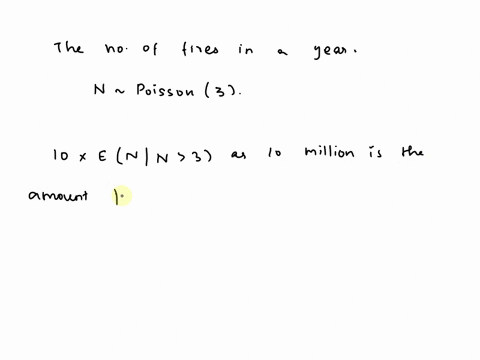 The no. of fires in a year.
N ~ Poisson (3).
10 x E (N | N > 3) as 10 million is the
amount